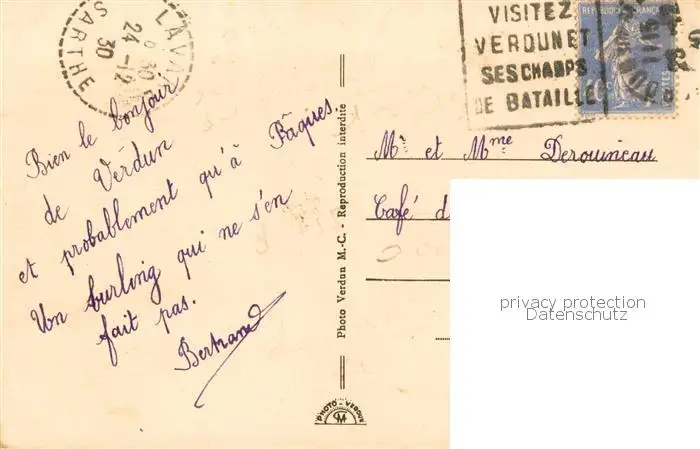 LAVA
6 30
24-12
30
SARTHE
VISITEZ
VERDUN ET
SES CHAMPS
DE BATAILLE
REPUBLIQUE FRANCAISE
Bien le bonjour
de Verdun
et probablement qu'à Pâques.
Un burling qui ne s'en
fait pas.
Bertrand
Photo Verdun M.-C. - Reproduction interdite
PHOTO - VERDUN
CM
Mr et Mme Derouineau
Café d
privacy protection
Datenschutz